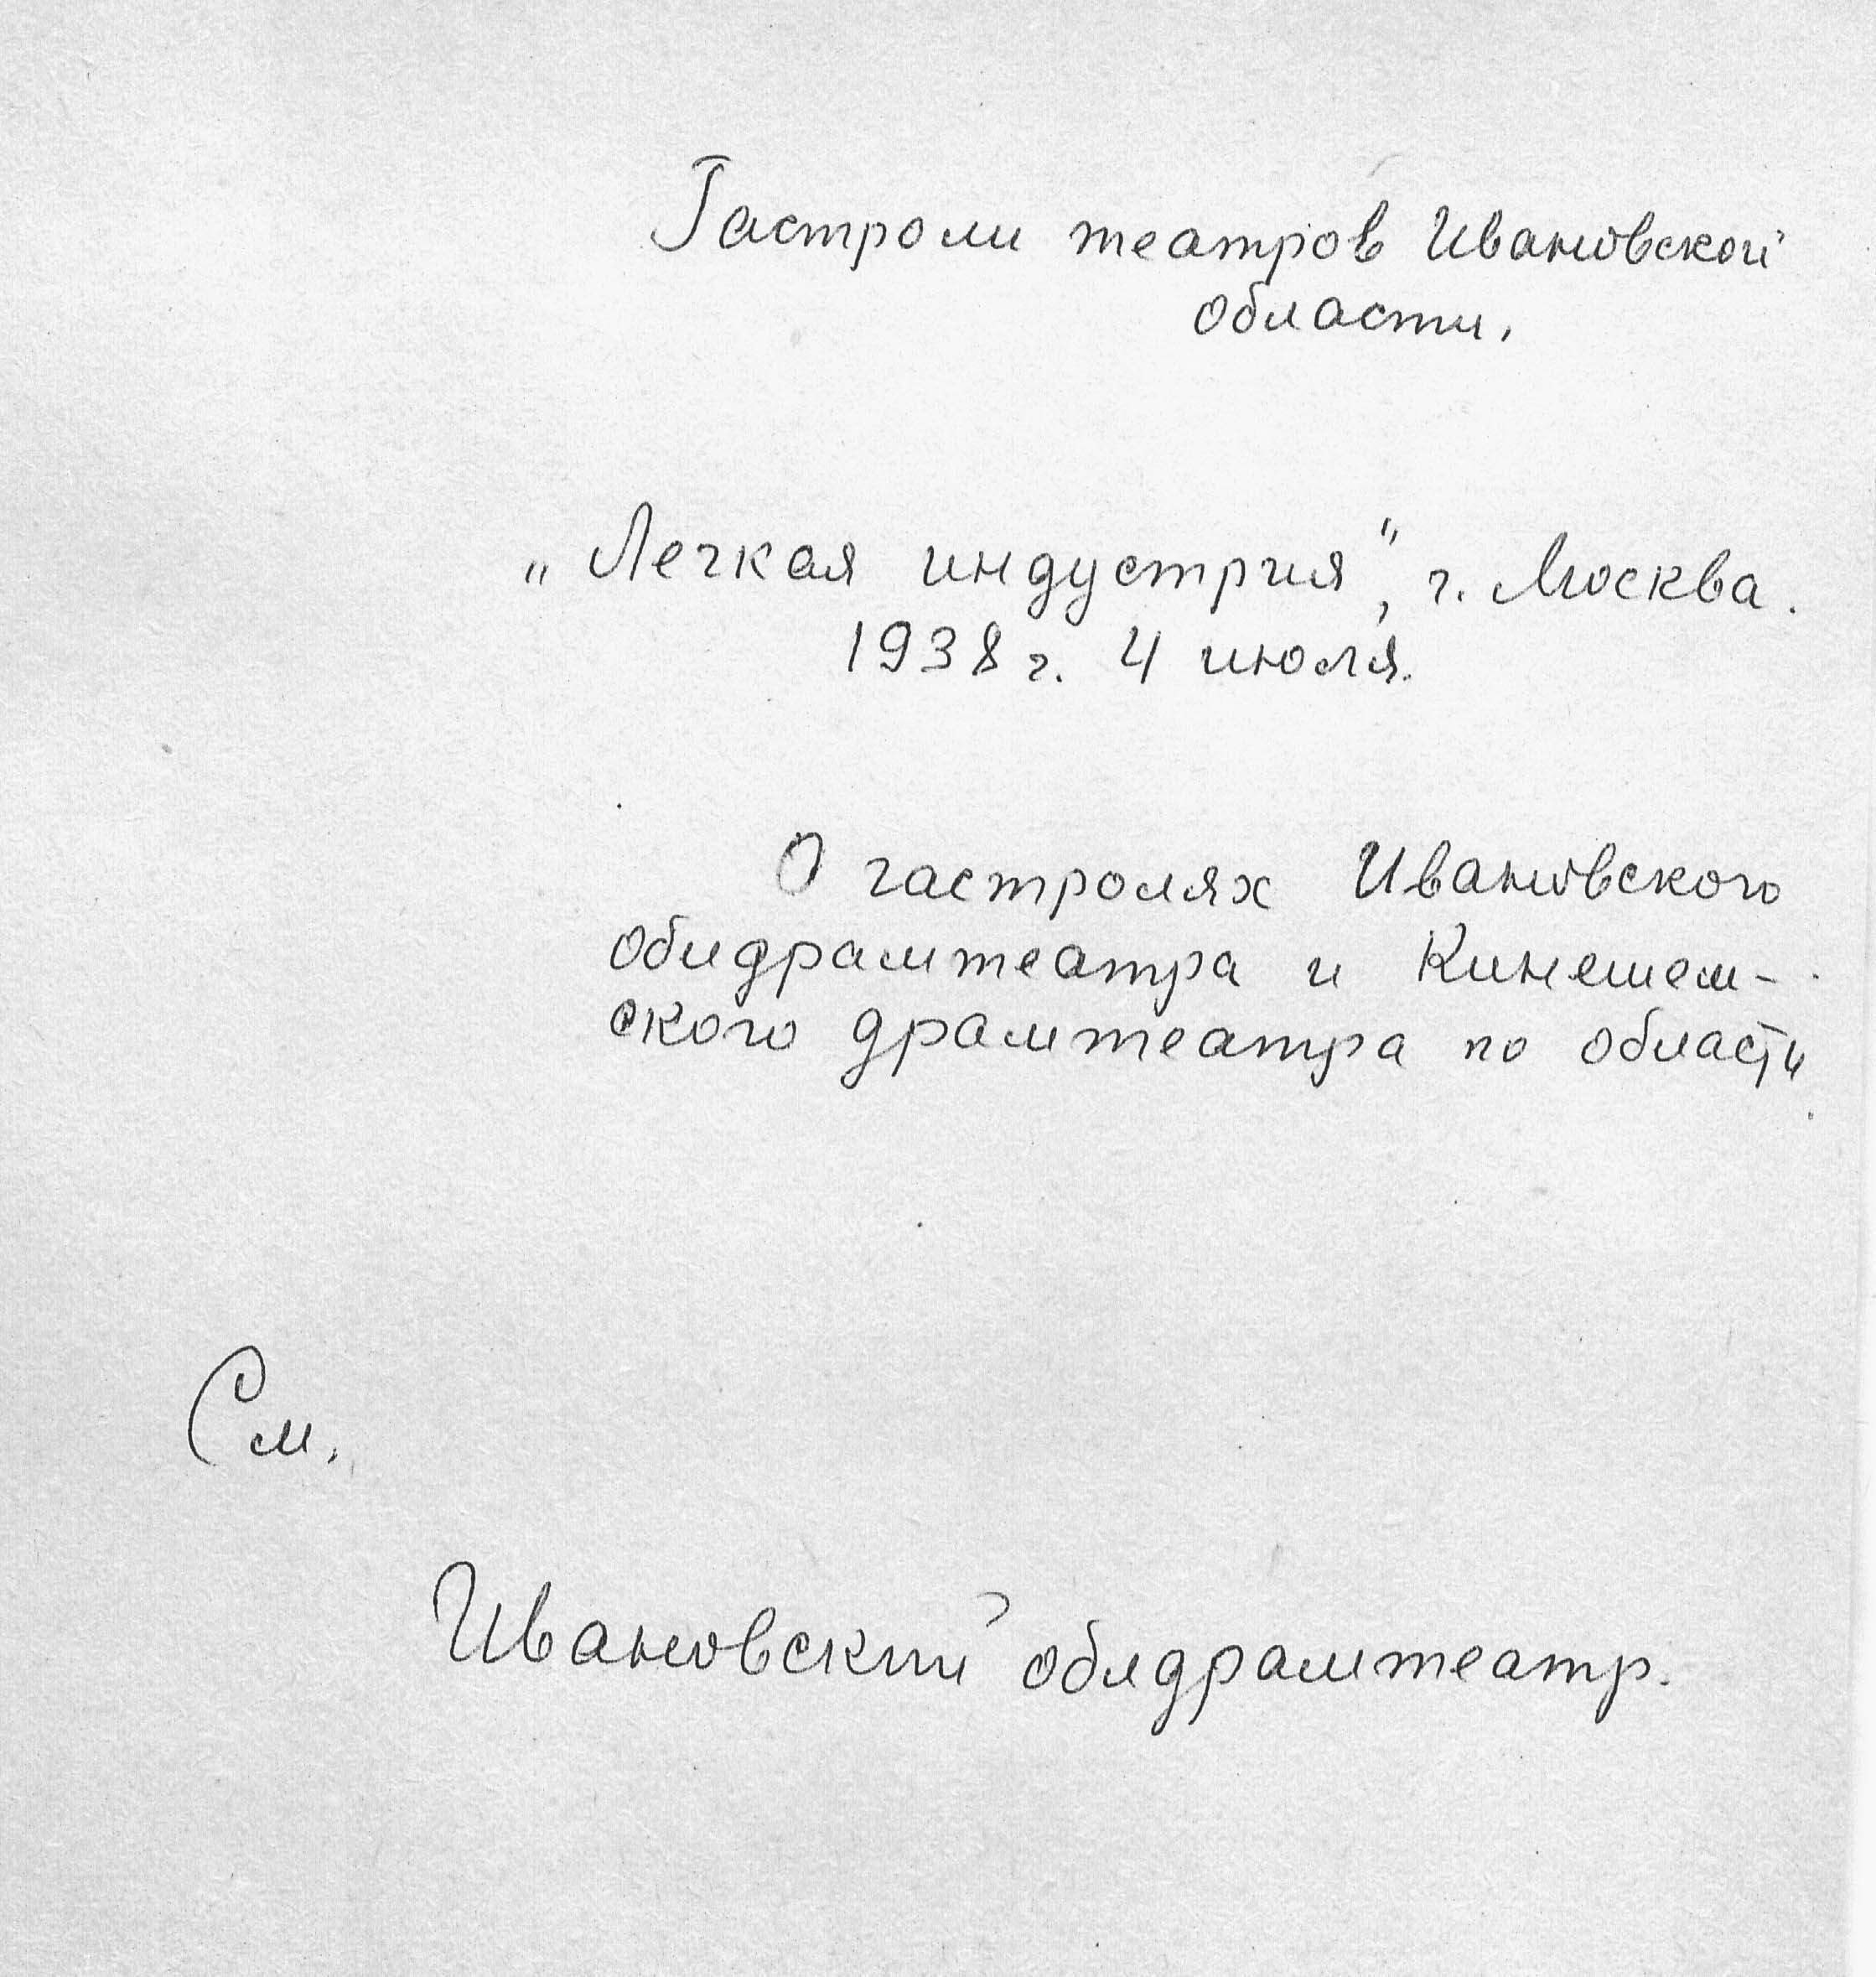 Гастроли театров Ивановской
области.
„Легкая индустрия", г. Москва.
1938 г. 4 июля.
О гастролях Ивановского
облдрамтеатра и Кинешем-
ского драмтеатра по области.
См.
Ивановский облдрамтеатр.